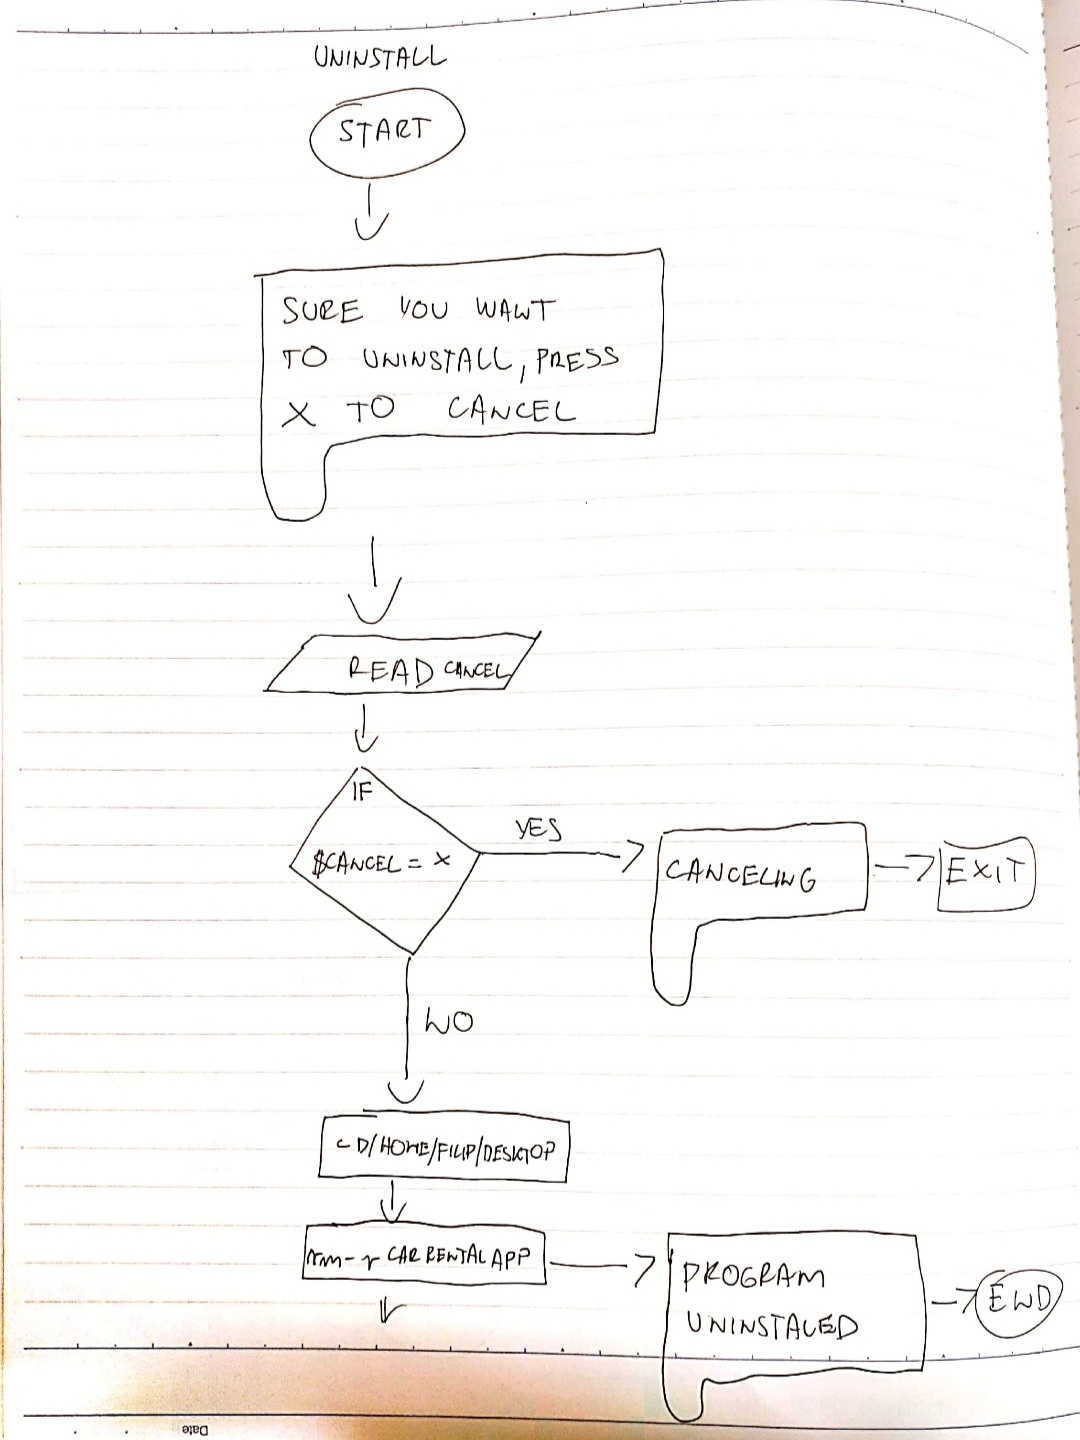 UNINSTALL
START
SURE YOU WANT
TO UNINSTALL, PRESS
X TO CANCEL
READ CANCEL
IF
$CANCEL = X
YES
CANCELING
EXIT
NO
CD/HOME/FILIP/DESKTOP
rm-r CAR RENTAL APP
PROGRAM
UNINSTALED
END
Date